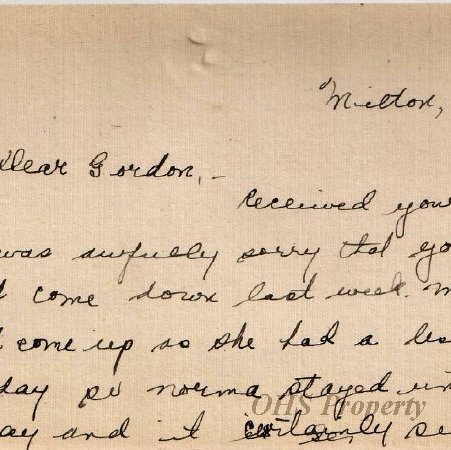 Milton,
Dear Gordon, -
Received your
was awfully sorry that yo
come down last week. M
come up so she had a les
day so norma stayed un
ay and it certainly se
OHS Property